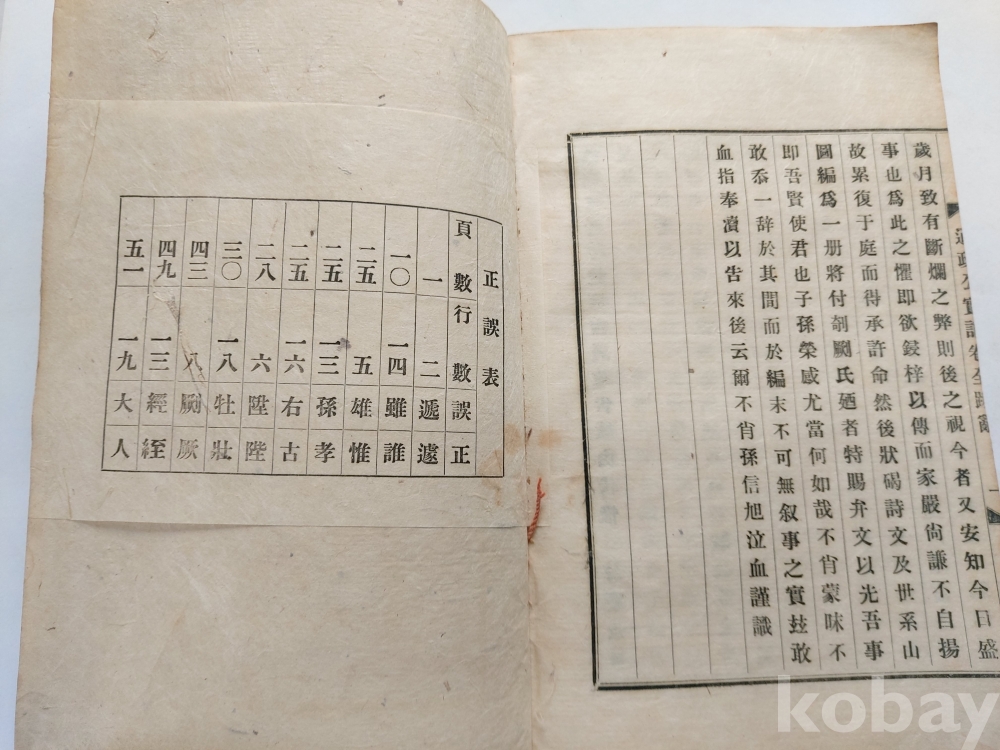 通政公實記卷
歲月致有斷爛之弊則後之視今者又安知今日盛
事也爲此之懼即欲鋟梓以傳而家嚴尙謙不自揚
故累復于庭而得承許命然後狀碣詩文及世系山
圖編爲一册將付剞劂氏廼者特賜弁文以光吾事
即吾賢使君也子孫榮感尤當何如哉不肖蒙昧不
敢忝一辞於其間而於編末不可無叙事之實玆敢
血指奉瀆以告來後云爾不肖孫信旭泣血謹識
正誤表
頁數行數誤正
一 二 遞 遽
一〇 一四 雖 誰
二五 五 雄 惟
二五 一三 孫 孝
二五 一六 右 古
二八 六 陞 陛
三〇 一八 牡 壯
四三 八 劂 厥
四九 一三 經 絰
五一 一九 大 人
kobay